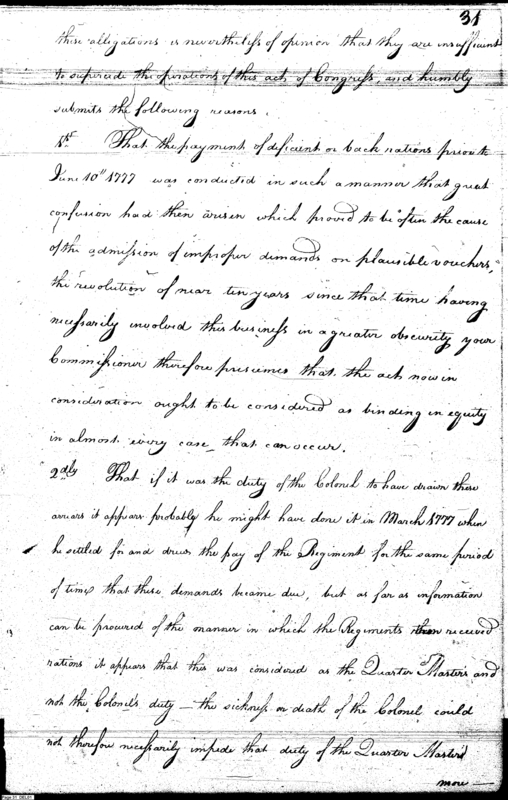 31
these allegations is nevertheless of opinion that they are insufficient
to supercede the operations of this act of Congress, and humbly
submits the following reasons.
1st. That the payment of deficient or back rations prior to
June 10th 1777 was conducted in such a manner that great
confusion had then arisen which proved to be "often the cause
of the admission of improper demands on plausible vouchers,"
the revolution of near ten years since that time having
necessarily involved this business in a greater obscurity your
Commissioner therefore presumes that the act now in
consideration ought to be considered as binding in equity
in almost every case that can occur.
2dly That if it was the duty of the Colonel to have drawn these
arrears it appears probably he might have done it in March 1777 when
he settled for and drew the pay of the Regiment for the same period
of time that these demands became due, but as far as information
can be procured of the manner in which the Regiments then received
rations it appears that this was considered as the Quarter Master's and
not the Colonel's duty — the sickness or death of the Colonel could
not therefore necessarily impede that duty of the Quarter Master's
more —